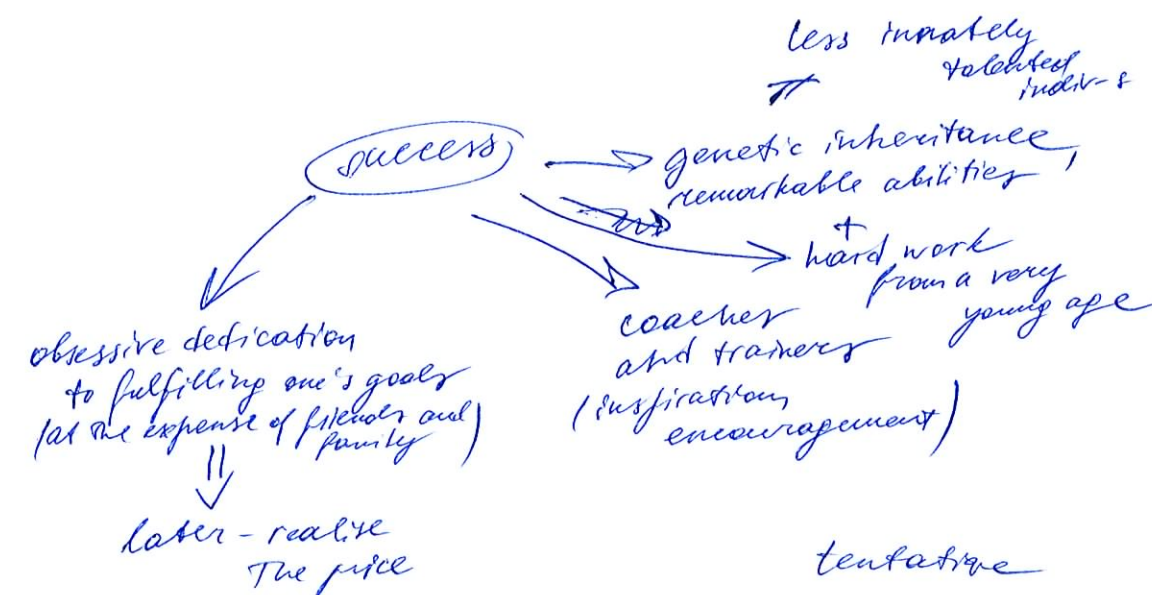 less innately
talented
indiv-s
success
genetic inheritance,
remarkable abilities
+
hard work
from a very
young age
coaches
and trainers
(inspiration,
encouragement)
obsessive dedication
to fulfilling one's goals
(at the expense of friends and
family)
later - realise
The price
tentative